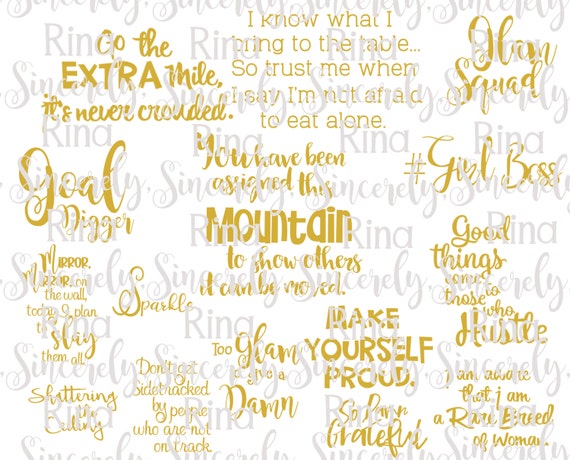 Go the
EXTRA mile,
it's never crowded.
I know what I
bring to the table...
So trust me when
I say I'm not afraid
to eat alone.
Glam
Squad
Goal
Digger
You have been
assigned this
Mountain
to show others
it can be moved.
#Girl Boss
Mirror,
Mirror, on
the wall,
today I plan
to
slay
them all.
Sparkle
Good
things
come to
those
who
Hustle
Too Glam
to give a
Damn
MAKE
YOURSELF
PROUD.
Shattering
the
Ceiling
Don't get
sidetracked
by people
who are not
on track.
So Damn
Grateful
I am aware
that i am
a Rare Breed
of Woman.
Sincerely,
Rina